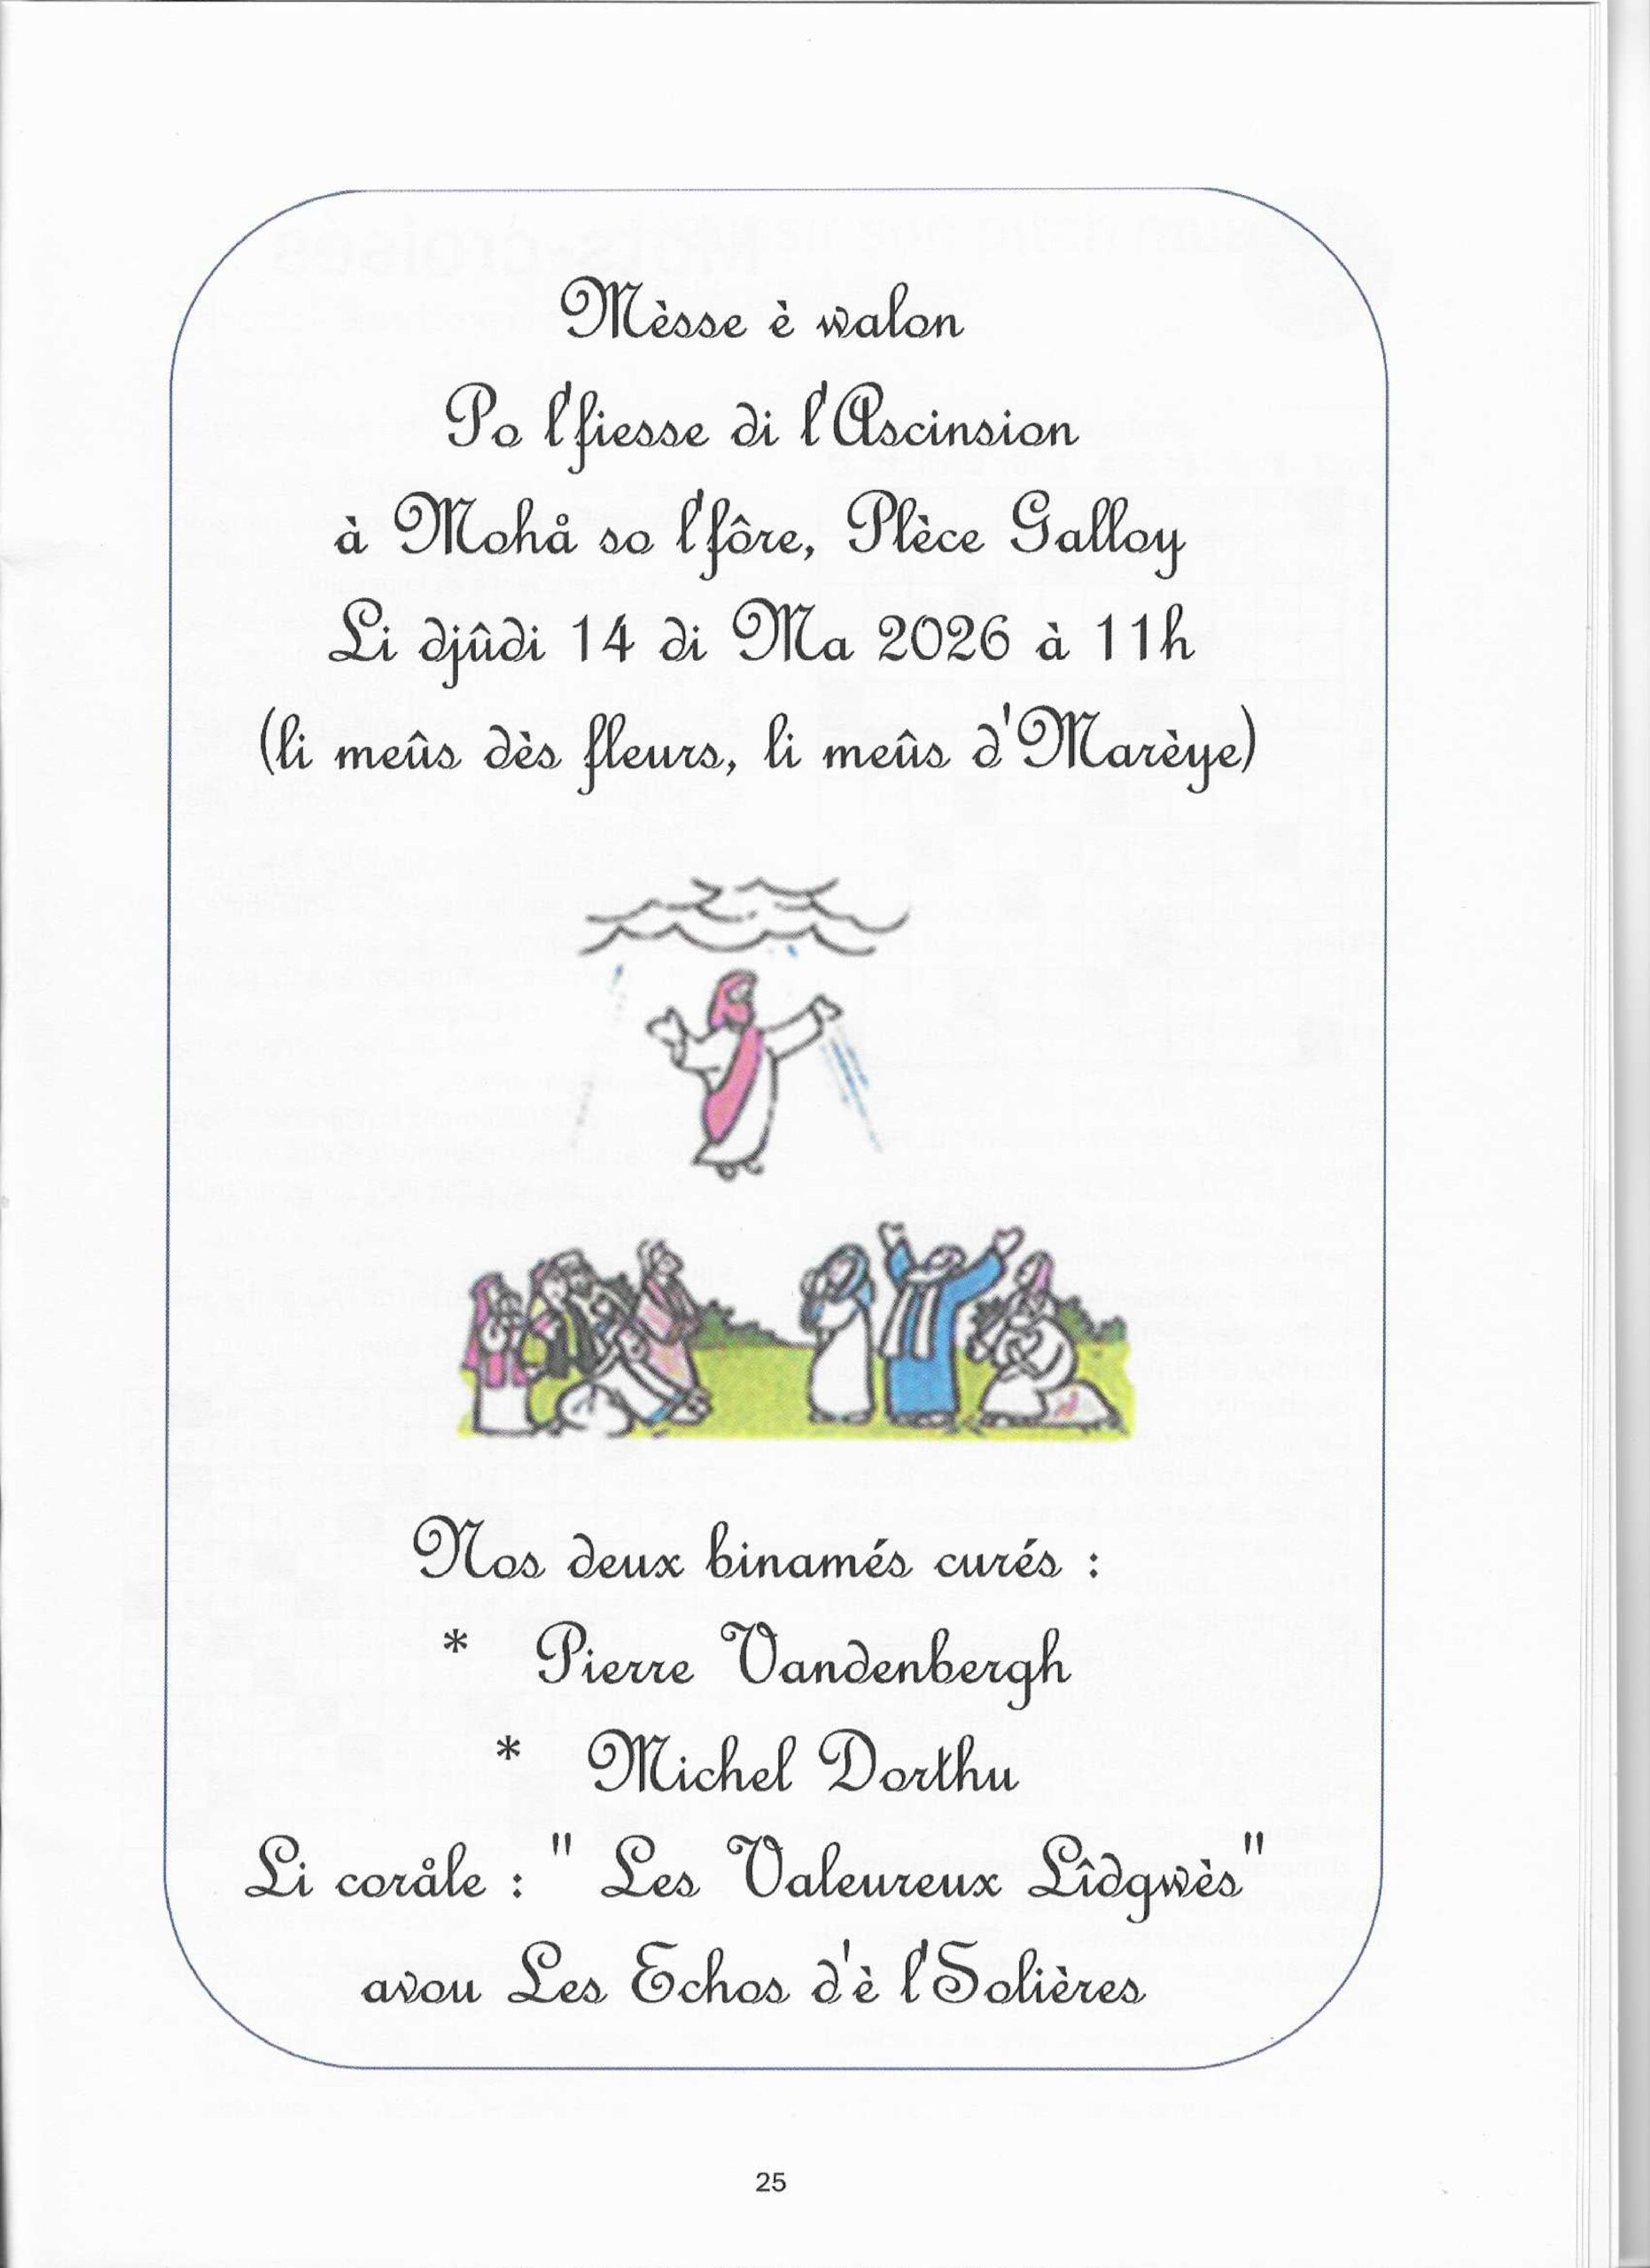 Mèsse è walon
Po l'fiesse di l'Ascinsion
à Mohå so l'fôre, Plèce Galloy
Li djûdi 14 di Ma 2026 à 11h
(li meûs dès fleurs, li meûs d'Marèye)
Nos deux binamés curés :
* Pierre Vandenbergh
* Michel Dorthu
Li coråle : " Les Valeureux Lîdgwès"
avou Les Echos d'è l'Solières
25